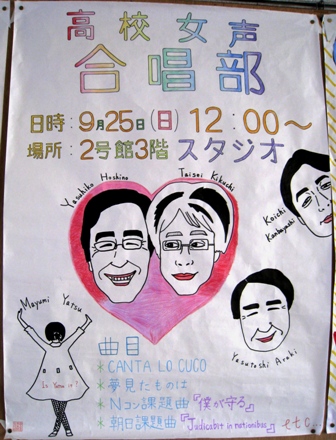 高校女声
合唱部
日時：9月25日(日) 12：00～
場所：2号館3階 スタジオ
Yasuhiko Hoshino
Taisei Kikuchi
Koichi Kanbayashi
Mayumi Yatsu
Yasutoshi Araki
曲目
*CANTA LO CUCO
*夢見たものは
*Nコン課題曲『僕が守る』
*朝日課題曲『Judicabit in nationibus』etc…